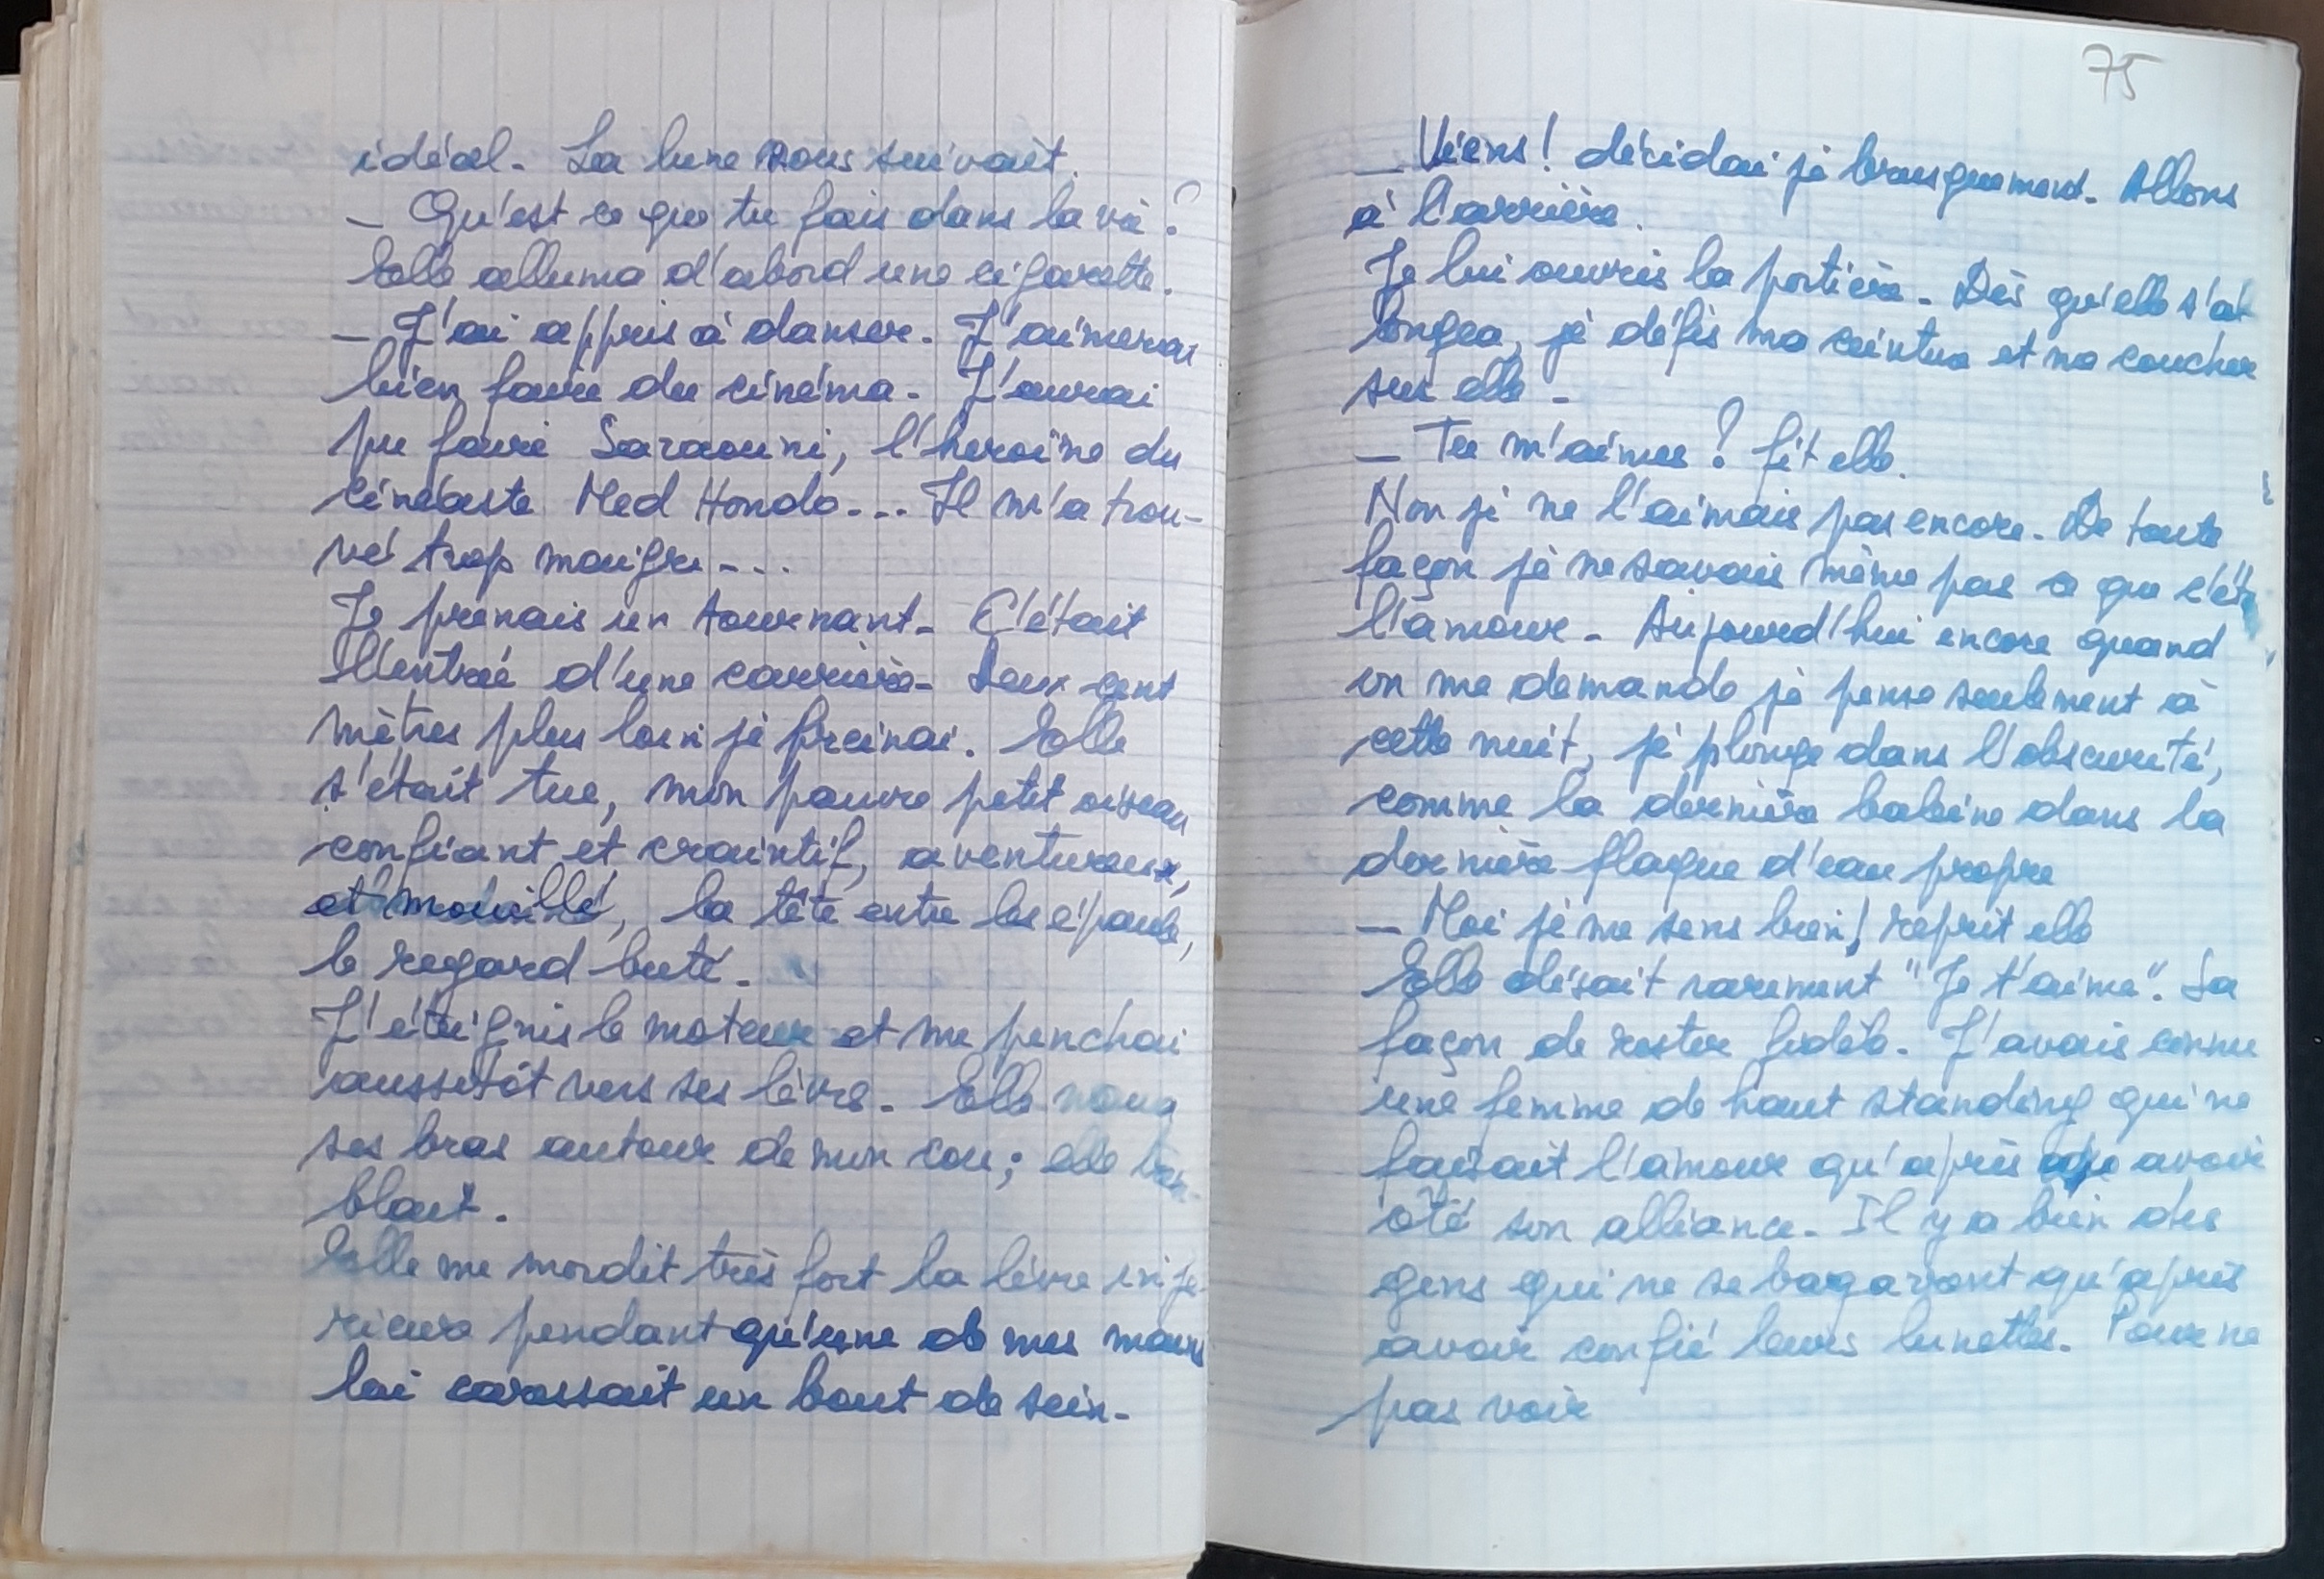 idéal. La lune nous suivait.
– Qu'est ce que tu fais dans la vie ?
Elle alluma d'abord une cigarette.
– J'ai appris à danser. J'aimerai
bien faire du cinéma. J'aurai
pu faire Saraouni, l'heroïne du
cinéaste Med Hondo... Il m'a trou-
vé trop maigre...
Je prenais un tournant. C'était
l'entrée d'une carrière. Deux cent
mètres plus loin je freinai. Elle
s'était tue, mon pauvre petit oiseau
confiant et craintif, aventureux,
et mouillé, la tête entre les épaule,
le regard buté.
J'éteignis le moteur et me penchai
aussitôt vers ses lèvre. Elle noua
ses bras autour de mon cou; elle trem-
blait.
Elle me mordit très fort la lèvre infé-
rieure pendant qu'une de mes mains
lui caressait un bout de sein.
75
– Viens ! décidai je brusquement. Allons
à l'arrière.
Je lui ouvris la portière. Dès qu'elle s'al-
longea, je défis ma ceinture et me coucher
sur elle.
– Tu m'aimes ? fit elle.
Non je ne l'aimais pas encore. De toute
façon je ne savais même pas ce que c'ét
l'amour. Aujourd'hui encore quand
on me demande je pense seulement à
cette nuit, je plonge dans l'obscurité,
comme la dernière baleine dans la
dernière flaque d'eau propre
– Moi je me sens bien ! reprit elle
Elle disait rarement "Je t'aime". Sa
façon de rester fidèle. J'avais connu
une femme de haut standing qui ne
faisait l'amour qu'après avoir
ôté son alliance. Il y a bien des
gens qui ne se bagarront qu'après
avoir confié leurs lunettes. Pour ne
pas voir